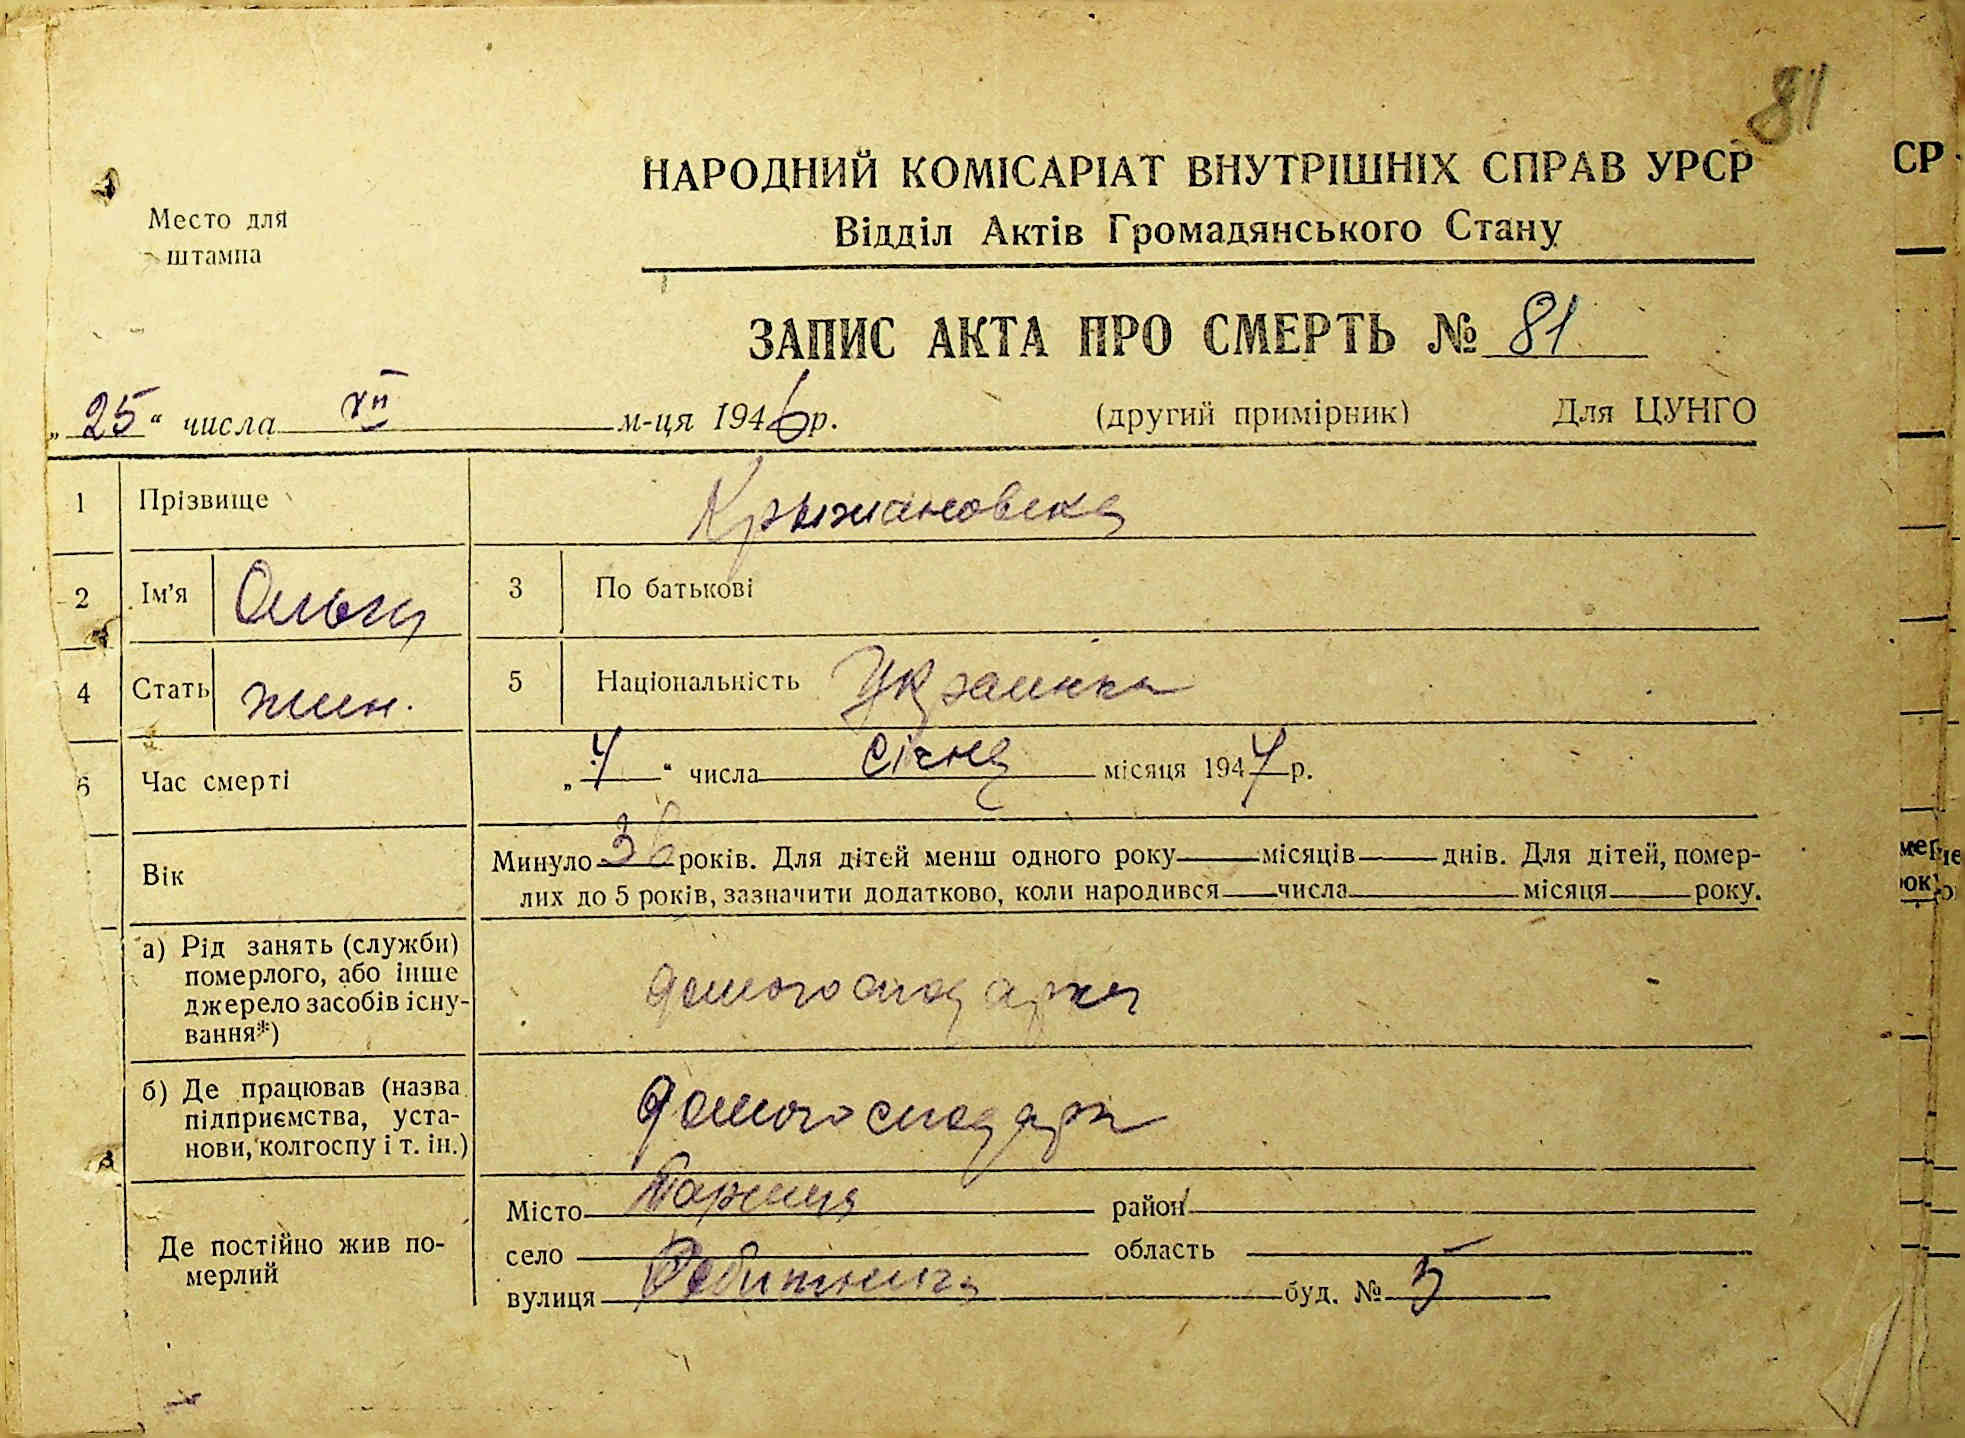 81
НАРОДНИЙ КОМІСАРІАТ ВНУТРІШНІХ СПРАВ УРСР
СР
Место для
штампа
Відділ Актів Громадянського Стану
ЗАПИС АКТА ПРО СМЕРТЬ № 81
„25“ числа VII м-ця 1946 р. (другий примірник) Для ЦУНГО
1 Прізвище Крыжановска
2 Ім'я Ольга 3 По батькові
4 Стать жин. 5 Національність Украинка
6 Час смерті „7“ числа січня місяця 1947 р.
Вік Минуло 36 років. Для дітей менш одного року місяців днів. Для дітей, помер-
лих до 5 років, зазначити додатково, коли народився числа місяця року.
а) Рід занять (служби)
померлого, або інше
джерело засобів існу-
вання*)
домогосподарка
б) Де працював (назва
підприємства, уста-
нови, колгоспу і т. ін.)
домогосподарк
Де постійно жив по-
мерлий
Місто район
село область
вулиця буд. № 5